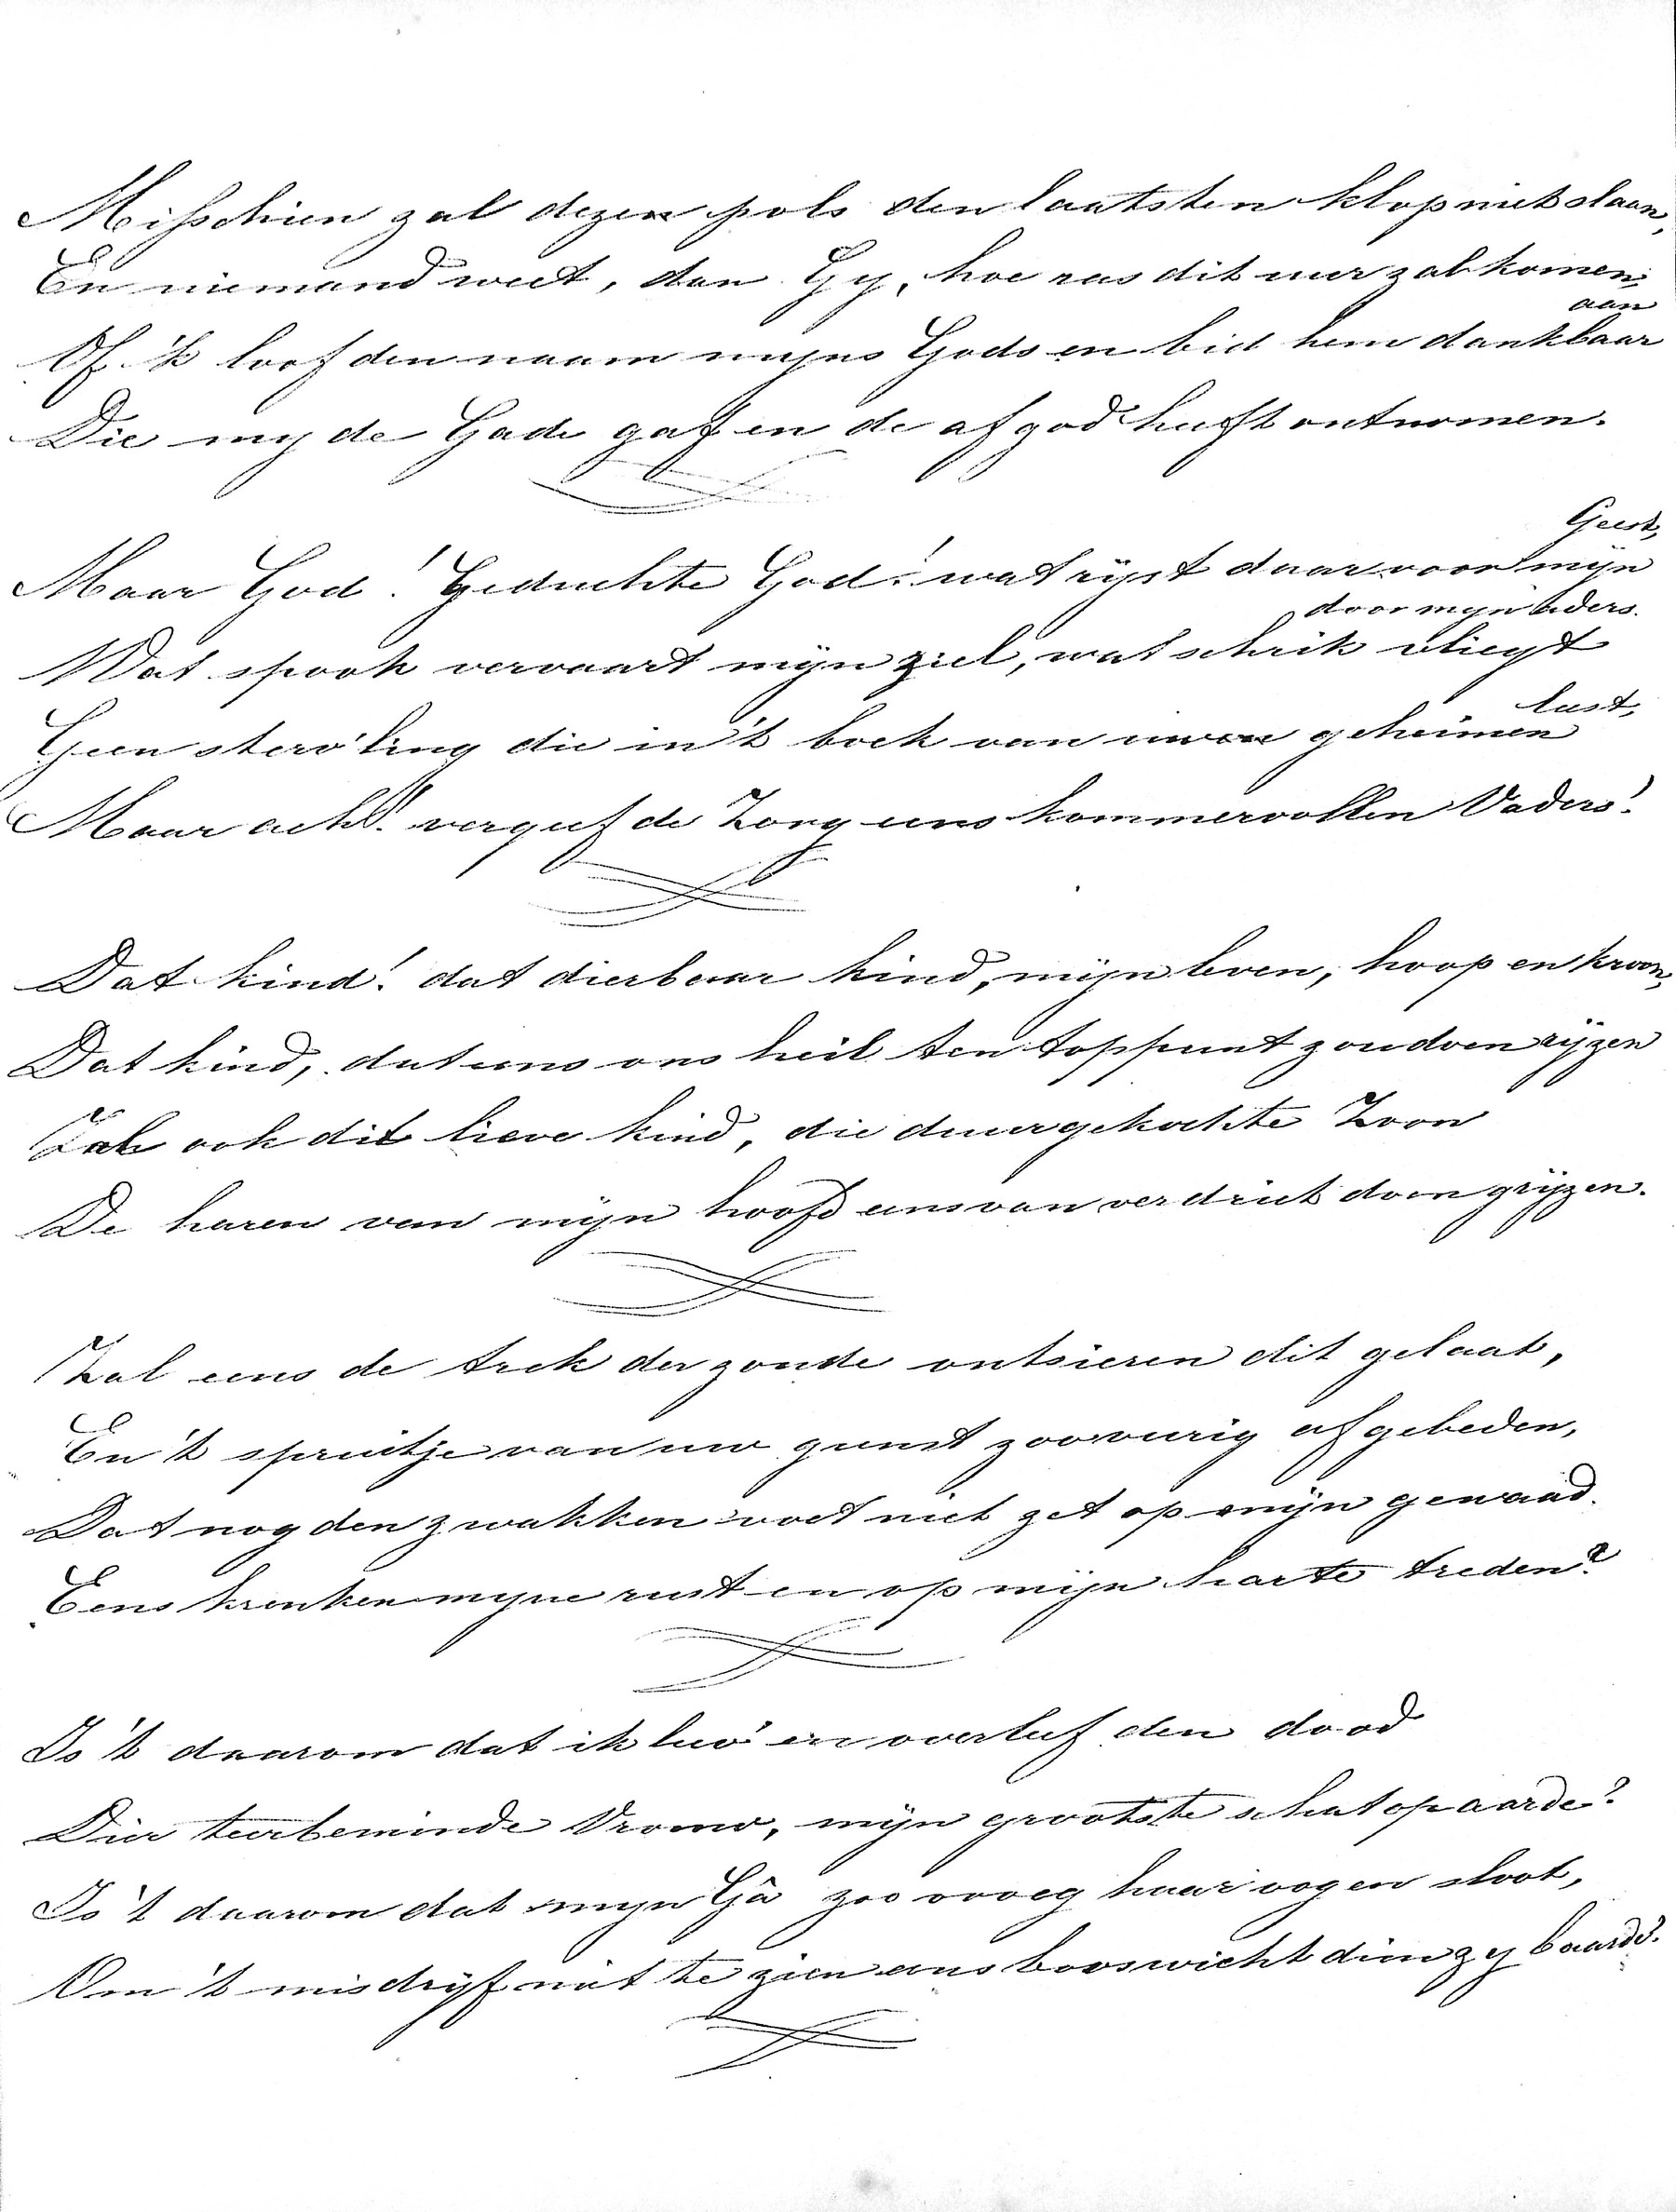 Misschien zal dezen pols den laatsten klop niet slaan,
En niemand weet, dan Gy, hoe ras dit uur zal komen;
Of 'k loof den naam myns Gods en bid hem dankbaar aan
Die my de Gade gaf en de afgod heeft ontnomen.
Maar God! Geduchte God! wat rijst daar voor mijn Geest,
Wat spook vervaart mijn ziel, wat schrik vliegt door mijn aders.
Geen sterv'ling die in 't boek van uwen geheimen leest,
Maar ach! vergeef de Zorg eens kommervollen Vaders!
Dat kind! dat dierbaar kind, mijn leven, hoop en kroon,
Dat kind, dat eens ons heil ten toppunt zou doen rijzen
Zal ook dit lieve kind, die duurgekochte Zoon
De haren van mijn hoofd eens van verdriet doen grijzen.
Zal eens de trek der zonde ontsieren dit gelaat,
En 't spruitje van uw gunst zoo vurig afgebeden,
Dat nog den zwakken voet niet zet op mijn gewaad.
Eens krenken myne rust en op mijn harte treden?
Is 't daarom dat ik leev' en overleef den dood
Dier teerbeminde Vrouw, mijn grootste schat op aarde?
Is 't daarom dat mijn Gâ zoo vroeg haar oogen sloot,
Om 't misdrijf niet te zien eens booswicht dien zy baarde?